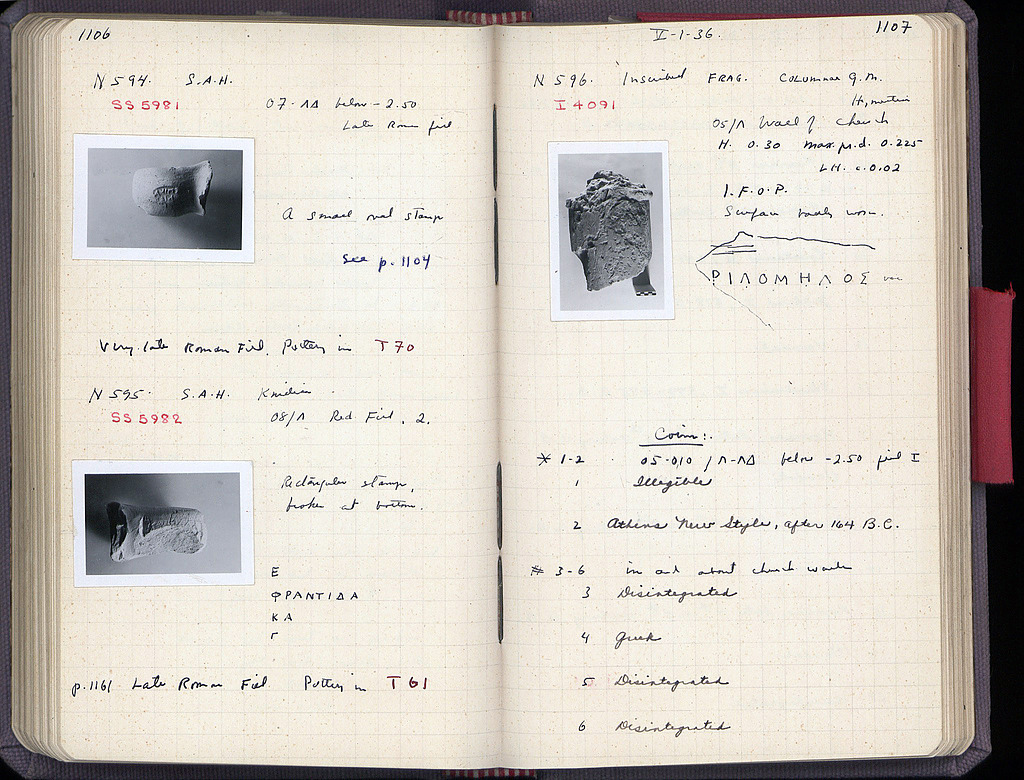 1106
N 594. S.A.H.
SS 5981
07-ΛΔ below -2.50
Late Roman fill
A small oval stamp
See p. 1104
Very late Roman Fill. Pottery in T 70
N 595. S.A.H. Knidian
SS 5982
08/Λ Red Fill, 2.
Rectangular stamp,
broken at bottom.
Ε
ΦΡΑΝΤΙΔΑ
ΚΑ
Γ
p. 1161 Late Roman Fill Pottery in T 61
V-1-36.
1107
N 596. Inscribed FRAG. COLUMNAR G.M.
I 4091
Hymettian
05/Λ Wall of Church
H. 0.30 max. p.d. 0.225
LH. c. 0.02
I.F.O.P.
Surface badly worn.
ΡΙΛΟΜΗΛΟΣ vac
Coins:
* 1-2 05-010 / Λ-ΛΔ below -2.50 fill I
1 Illegible
2 Athens New Style, after 164 B.C.
* 3-6 in and about church walls
3 Disintegrated
4 Greek
5 Disintegrated
6 Disintegrated